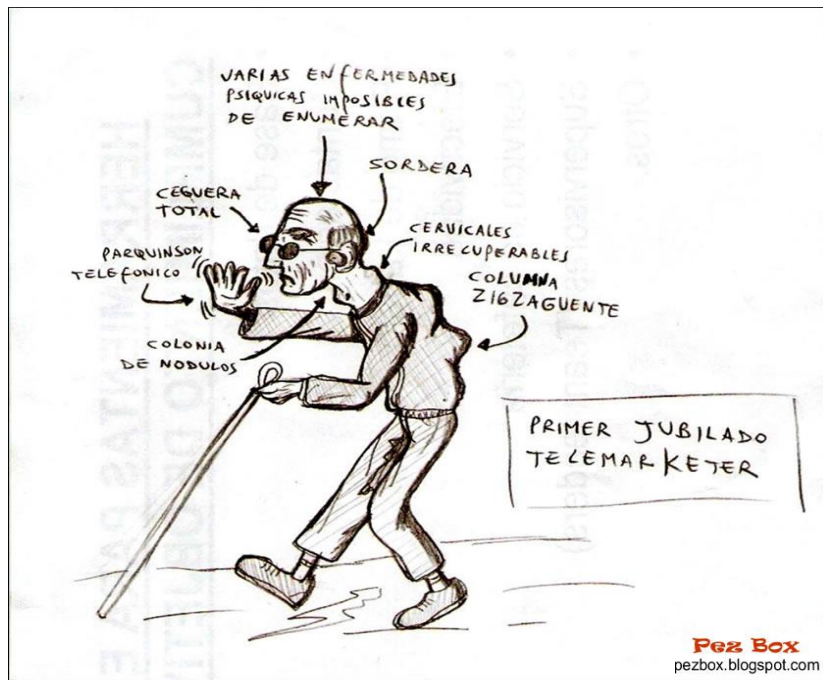 VARIAS ENFERMEDADES
PSIQUICAS IMPOSIBLES
DE ENUMERAR
SORDERA
CEGUERA
TOTAL
CERVICALES
IRRECUPERABLES
PARQUINSON
TELEFONICO
COLUMNA
ZIGZAGUENTE
COLONIA
DE NODULOS
PRIMER JUBILADO
TELEMARKETER
Otros.
Supervisores (Team leaders)
Pez Box
pezbox.blogspot.com